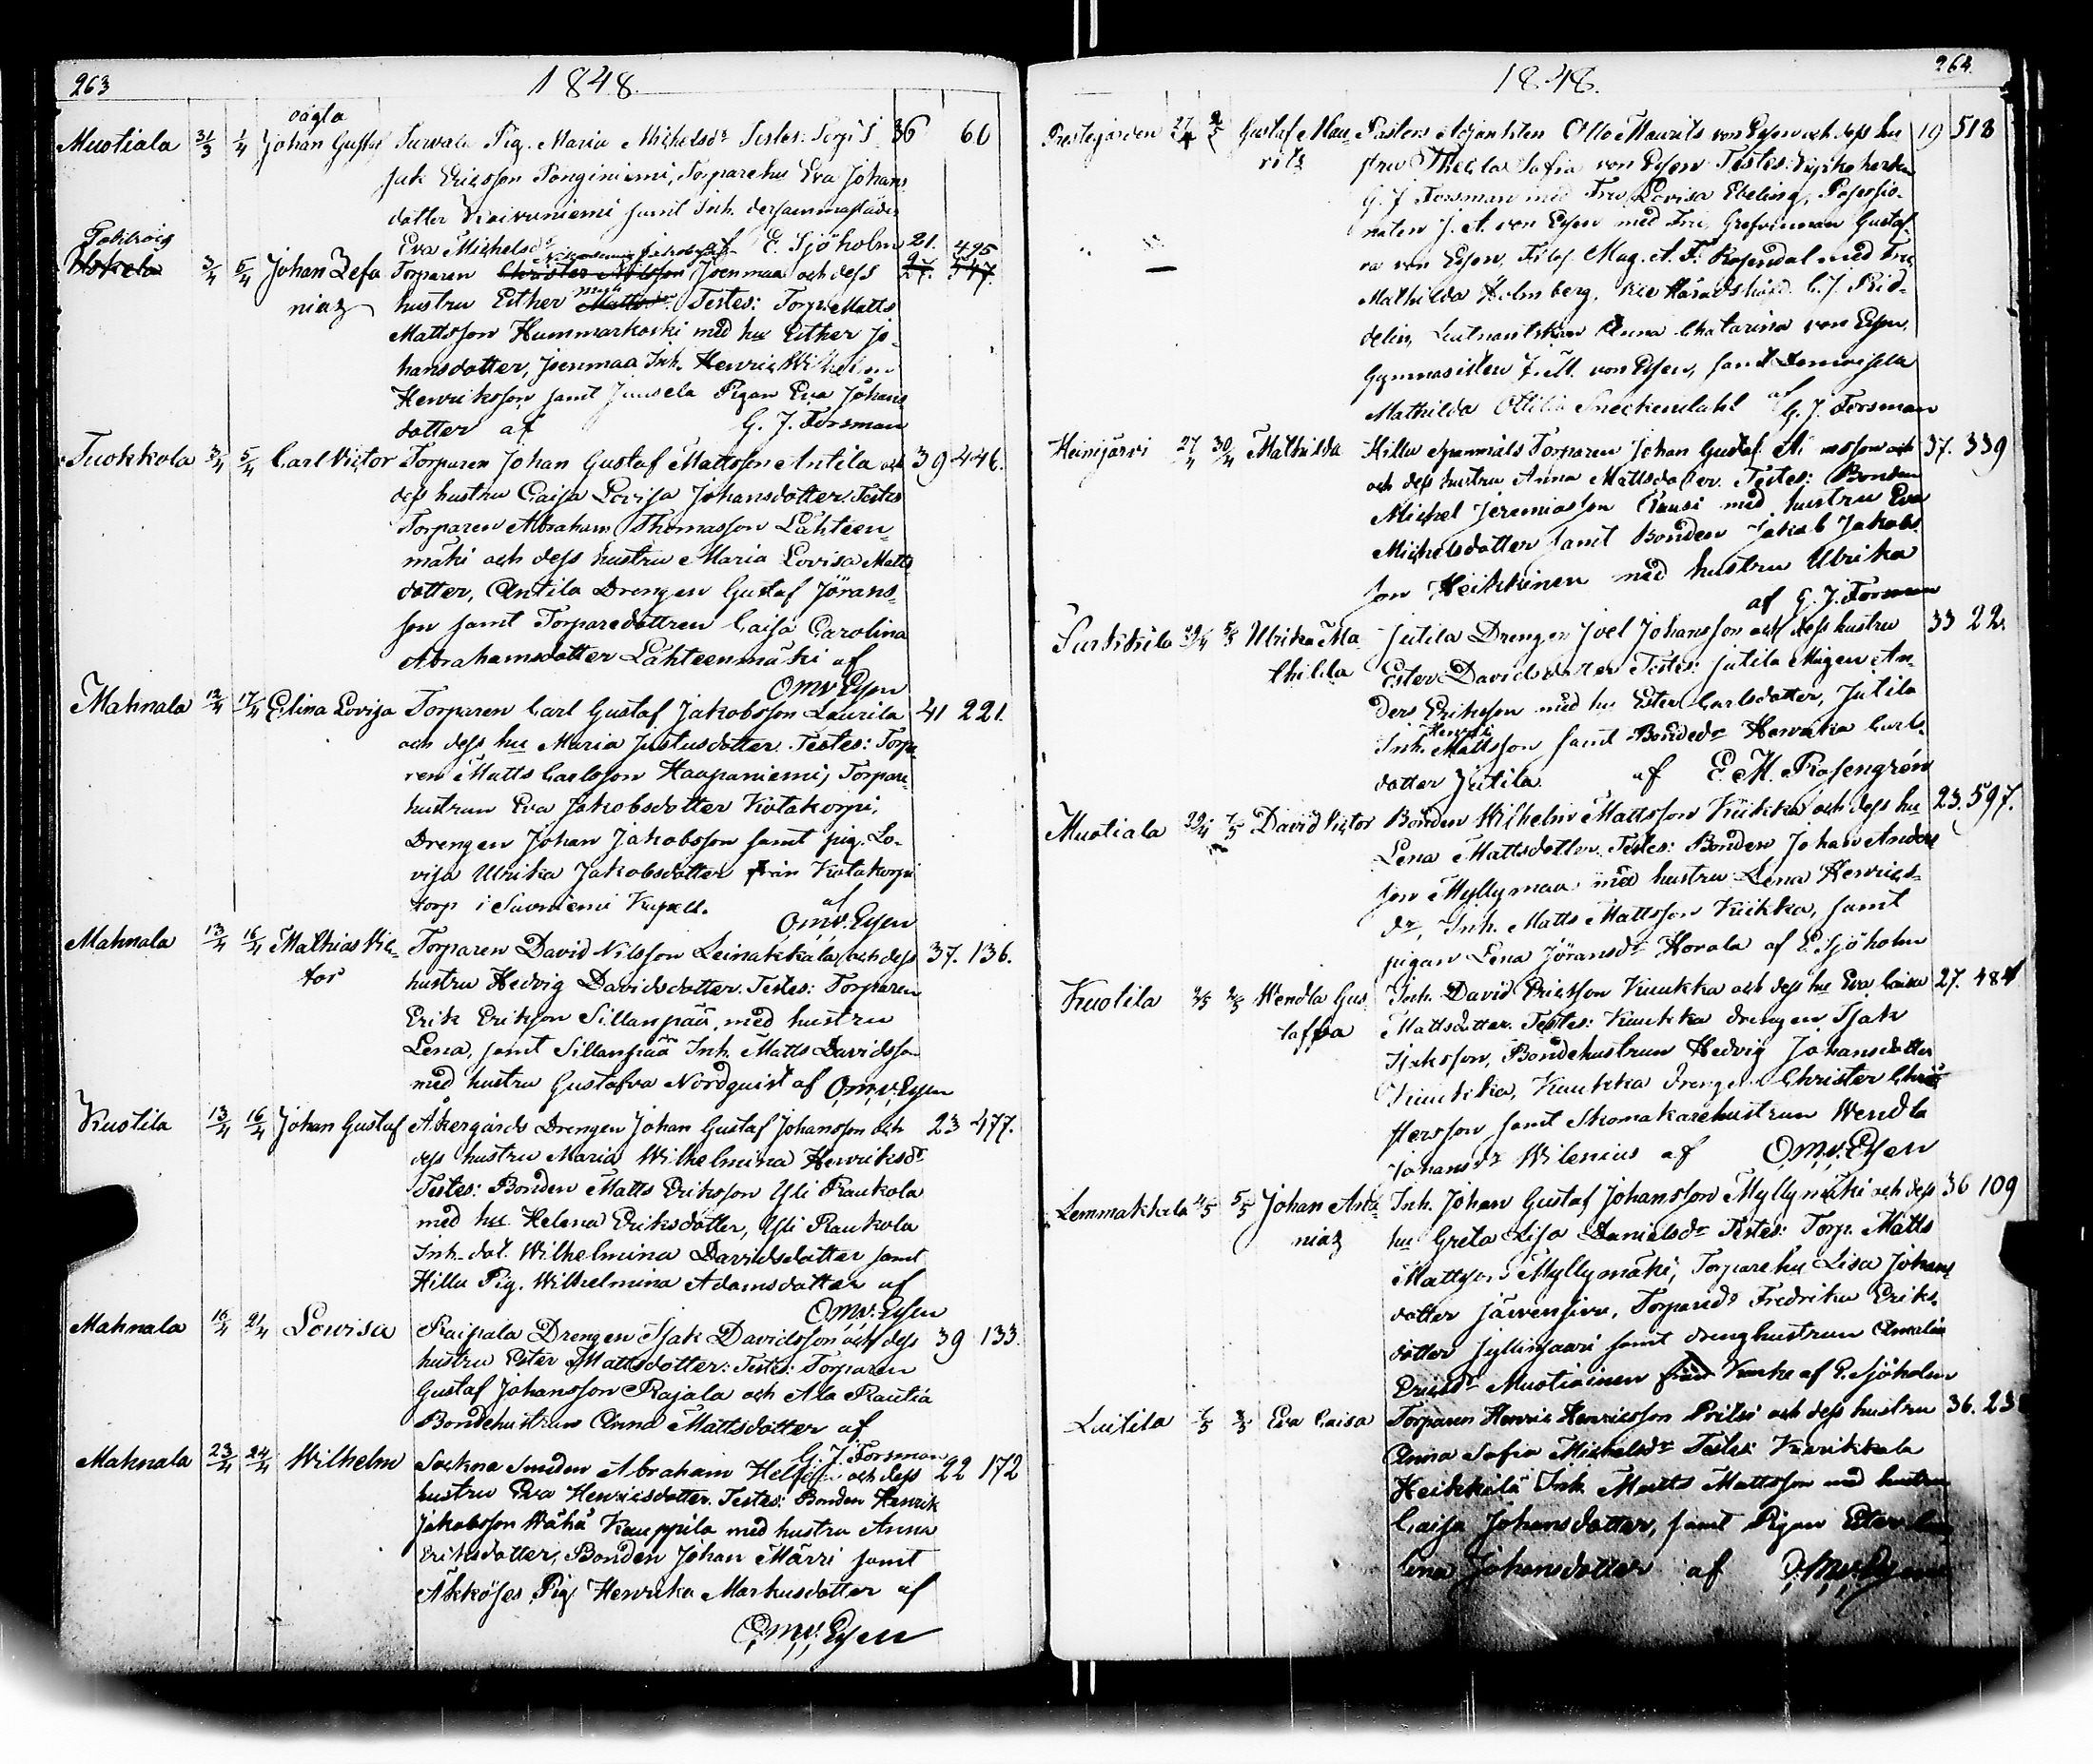 263
1848.
oägta
Muotiala 31/3 1/4 Johan Gustaf Pig. Maria Michelsdr Testes: 36 60
Ericsson Ponginiemi, Torparehu Eva Johans
dotter samt Inh. dersammastädes
Eva Michelsdr af E. Sjöholm 21. 495
Hokela 3/4 5/4 Johan Zefa Torparen Christer Nilsson Joenmaa och dess 27. 547.
niaz hustru Esther Testes: Torp. Matts
Mattsson Hummarkoski med hu Esther Jo-
hansdotter, Joenmaa Inh. Henric Wilhelm
Henriksson samt Juusela Pigan Eva Johans
dotter af G. J. Forsman
Tuokkola 3/4 5/4 Carl Victor Torparen Johan Gustaf Mattsson Antila och 39 446.
dess hustru Caisa Lovisa Johansdotter. Testes
Torparen Abraham Thomasson Lähteen-
mäki och dess hustru Maria Lovisa Matts
dotter, Antila Drengen Gustaf Jörans-
son samt Torparedottren Caisa Carolina
Abrahamsdotter Lähteenmäki af
OMv Essen
Mahnala 12/4 17/4 Elina Loviza Torparen Carl Gustaf Jakobsson Laurila 41 221.
och dess hu Maria Justusdotter. Testes: Torpa
ren Matts Carlsson Haapaniemi, Torpare
hustrun Eva Jakobsdotter Kotakorpi,
Drengen Johan Jakobsson samt pig. Lo-
visa Ulrika Jakobsdotter från Kotakorpi
torp i Suoniemi Kapell. af
O,m,v. Essen
Mahnala 13/4 16/4 Mathias Vic- Torparen David Nilsson Leinakkala och dess 37. 136.
tor hustru Hedvig Davidsdotter. Testes: Torparen
Erik Erikson Sillanpää, med hustru
Lena, samt Sillanpää Inh. Matts Davidsson
med hustru Gustafva Nordquist af O,m,v, Essen
Kuotila 13/4 16/4 Johan Gustaf Åkergårds Drengen Johan Gustaf Johansson och 23 477.
dess hustru Maria Wilhelmina Henriksdr
Testes: Bonden Matts Eriksson Yli Raukola
med hu Helena Eriksdotter, Yli Raukola
Inh. dot. Wilhelmina Davidsdotter samt
Hillu Pig. Wilhelmina Adamsdotter af
O,m,v. Essen
Mahnala 16/4 21/4 Lowisa Raipala Drengen Isak Davidsson och dess 39 133.
hustru Ester Mattsdotter: Testes: Torparen
Gustaf Johansson Rajala och Ala Rautia
Bondehustrun Anna Mattsdotter af
G. J. Forsman
Mahnala 23/4 24/4 Wilhelm Sockne Smeden Abraham och dess 22 172
hustru Eva Henricsdotter. Testes: Bonden Henrik
Jakobsson Wähä Kauppila med hustru Anna
Eriksdotter, Bonden Johan Märri samt
Äkköjes Pig. Henrika Markusdotter af
O,m,v. Essen
264.
1848.
Prestegården 27/4 2/5 Gustaf Mau- Pastors Adjunkten Otto Maurits von Essen och dess hu 19 518
rits stru Thecla Sofia von Essen Testes: Kyrkoherden
G. J. Forsman med Fru Lovisa Ebeling, Possessio-
naten J. A. von Essen med Fru, Grefvinnan Gustaf-
va von Essen, Filos. Mag. A. F. Rosendal med Fru
Mathilda Holmberg, vice Häradshöfd. C. J. Rid-
delin, Leutnantskan Anna Chatarina von Essen,
Gymnasisten F. M. von Essen, samt Demoiselle
Mathilda Ottilia Sneckendahl af G. J. Forsman
Heinijärvi 27/4 30/4 Mathilda Hillu Torparen Johan Gustaf och 37. 339
och dess hustru Anna Mattsdotter. Testes: Bonden
Michel Jeremiasson Pausi med hustru Eva
Michelsdotter samt Bonden Jakob Jakobs
son Heikkinen med hustru Ulrika
af G. J. Forsman
Surkkila 29/4 5/5 Ulrika Ma Jutila Drengen Joel Johansson och dess hustru 33 22.
thilda Ester Davidsdotter Testes: Jutila Mågen An-
ders Eriksson med hu Ester Carlsdotter, Jutila
Inh. Henric Mattsson samt Bondedr Henrika Carls-
dotter Jutila. af E. M. Rosengrén
Muotiala 29/4 7/5 David Victor Bonden Wilhelm Mattsson Kiikka och dess hu 23. 597.
Lena Mattsdotter. Testes: Bonden Johan Anders
son Myllymaa med hustru Lena Henrics-
dr, Inh. Matts Mattsson Kiikka, samt
pigan Lena Jöransdr Horala af E. Sjöholm
Kuotila 2/5 2/5 Wendla Gus- Inh. David Ericsson Kuukka och dess hu Eva Caisa 27. 484
tafva Mattsdotter. Testes: Kuukka drengen Isak
Isaksson, Bondehustrun Hedvig Johansdotter
Kuukka, Kuukka drengen Christer Chri-
stersson samt Skomakarehustrun Wendla
Johansdr Wilenius af O,M,v. Essen
Lemmakkala 4/5 5/5 Johan Ana- Inh. Johan Gustaf Johansson Myllymäki och dess 36 109
niaz hu Greta Lisa Danielsdr Testes: Torp. Matts
Mattsson Myllymäki, Torparehu Lisa Johans
dotter Järvensivu, Torparedr Fredrika Eriks-
dotter samt drenghustrun Amalia
Ericsdr Muotiainen från af E. Sjöholm
Laitila 7/5 8/5 Eva Caisa Torparen Henric Henricsson Pritsi och dess hustru 36. 23
Anna Sofia Michelsdr Testes: Kurikkala
Heikkilä Inh. Matts Mattsson med hustru
Caisa Johansdotter, samt Pigan Ester
lena Johansdotter af O,M,v. Essen